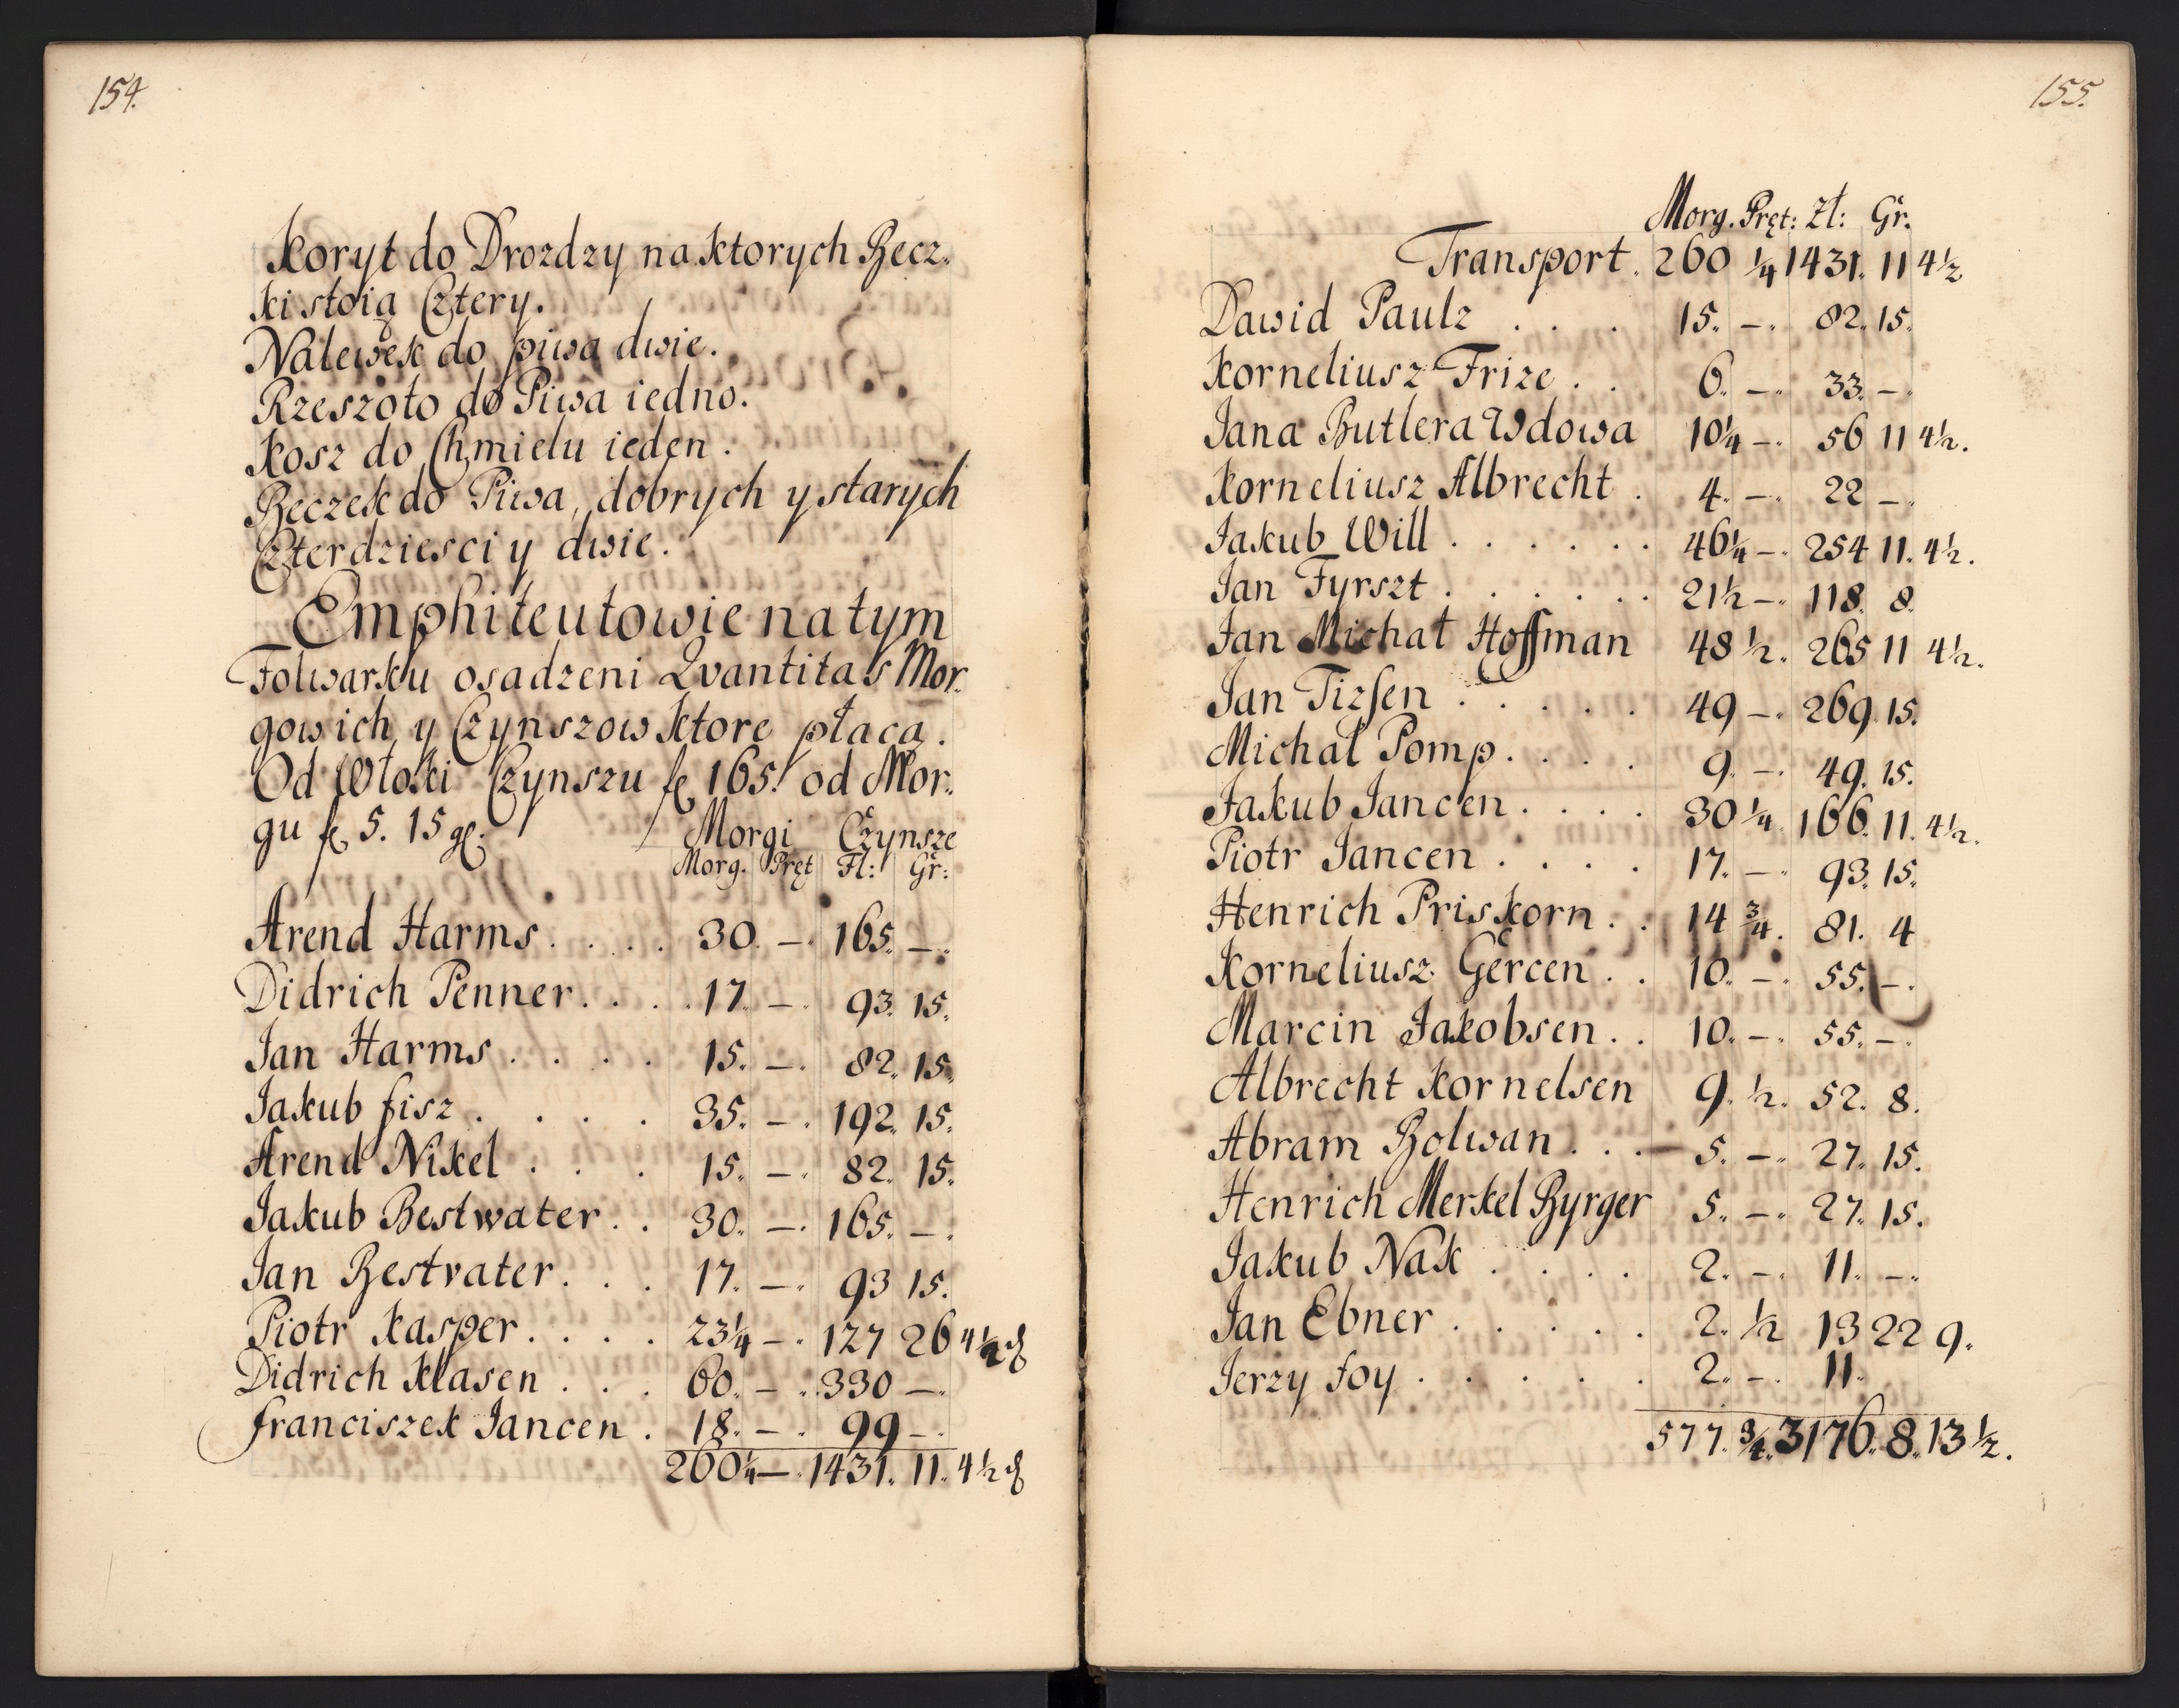 154.
Koryt do Drozdzy na Ktorych Becz.
ki stoią Cztery.
Nalewek do piwa dwie.
Rzeszoto do Piwa iedno.
Kosz do Chmielu ieden.
Beczek do Piwa, dobrych y starych
Czterdziesci y dwie.
Emphiteutowie na tym
Folwarku osadzeni Qvantitas Mor.
gow ich, y Czynszow Ktore płacą.
Od Włoki Czynszu fl 165. od Mor.
gu fl 5. 15 gl. Morgi Czynsze
Morg. Pręt Fl: Gr:
Arend Harms . . . . 30. —. 165. —.
Didrich Penner . . . . 17. —. 93. 15.
Jan Harms . . . . 15. —. 82. 15.
Jakub fisz . . . . 35. —. 192. 15.
Arend Nikel . . . 15. —. 82. 15.
Jakub Bestwater . . 30. —. 165. —.
Jan Bestvater . . . 17. —. 93 15.
Piotr Kasper . . . . 23¼ —. 127 26 4½ ₰
Didrich Klasen . . . 60. —. 330 —.
franciszek Jancen . 18. —. 99 —.
260¼ —. 1431. 11. 4½ ₰
155.
Morg. Pręt: Zł: Gr.
Transport. 260 ¼ 1431. 11 4½
Dawid Paulz . . . 15. —. 82. 15.
Korneliusz Frize . . 6. —. 33. —.
Jana Butlera Wdowa 10¼ —. 56 11 4½.
Korneliusz Albrecht . 4. —. 22 —.
Jakub Will . . . . . . 46¼ —. 254 11. 4½.
Jan Fyrszt . . . . . . 21½ —. 118. 8.
Jan Michał Hoffman 48 ½. 265 11 4½.
Jan Tizsen . . . . . 49 —. 269. 15.
Michał Pomp . . . . 9. —. 49. 15.
Jakub Jancen . . . . 30 ¼. 166. 11. 4½.
Piotr Jancen . . . . 17. —. 93. 15.
Henrich Priskorn . . 14 ¾. 81. 4
Korneliusz Gercen . . 10. —. 55. —.
Marcin Jakobsen . . 10. —. 55. —.
Albrecht Kornelsen 9. ½. 52. 8.
Abram Bolwan . . . 5. —. 27. 15.
Henrich Merkel Byrger 5. —. 27. 15.
Jakub Nak . . . . 2. —. 11. —.
Jan Ebner . . . . . 2. ½ 13 22 9.
Jerzy foy . . . . . 2. —. 11.
577. ¾. 3176. 8. 13½.